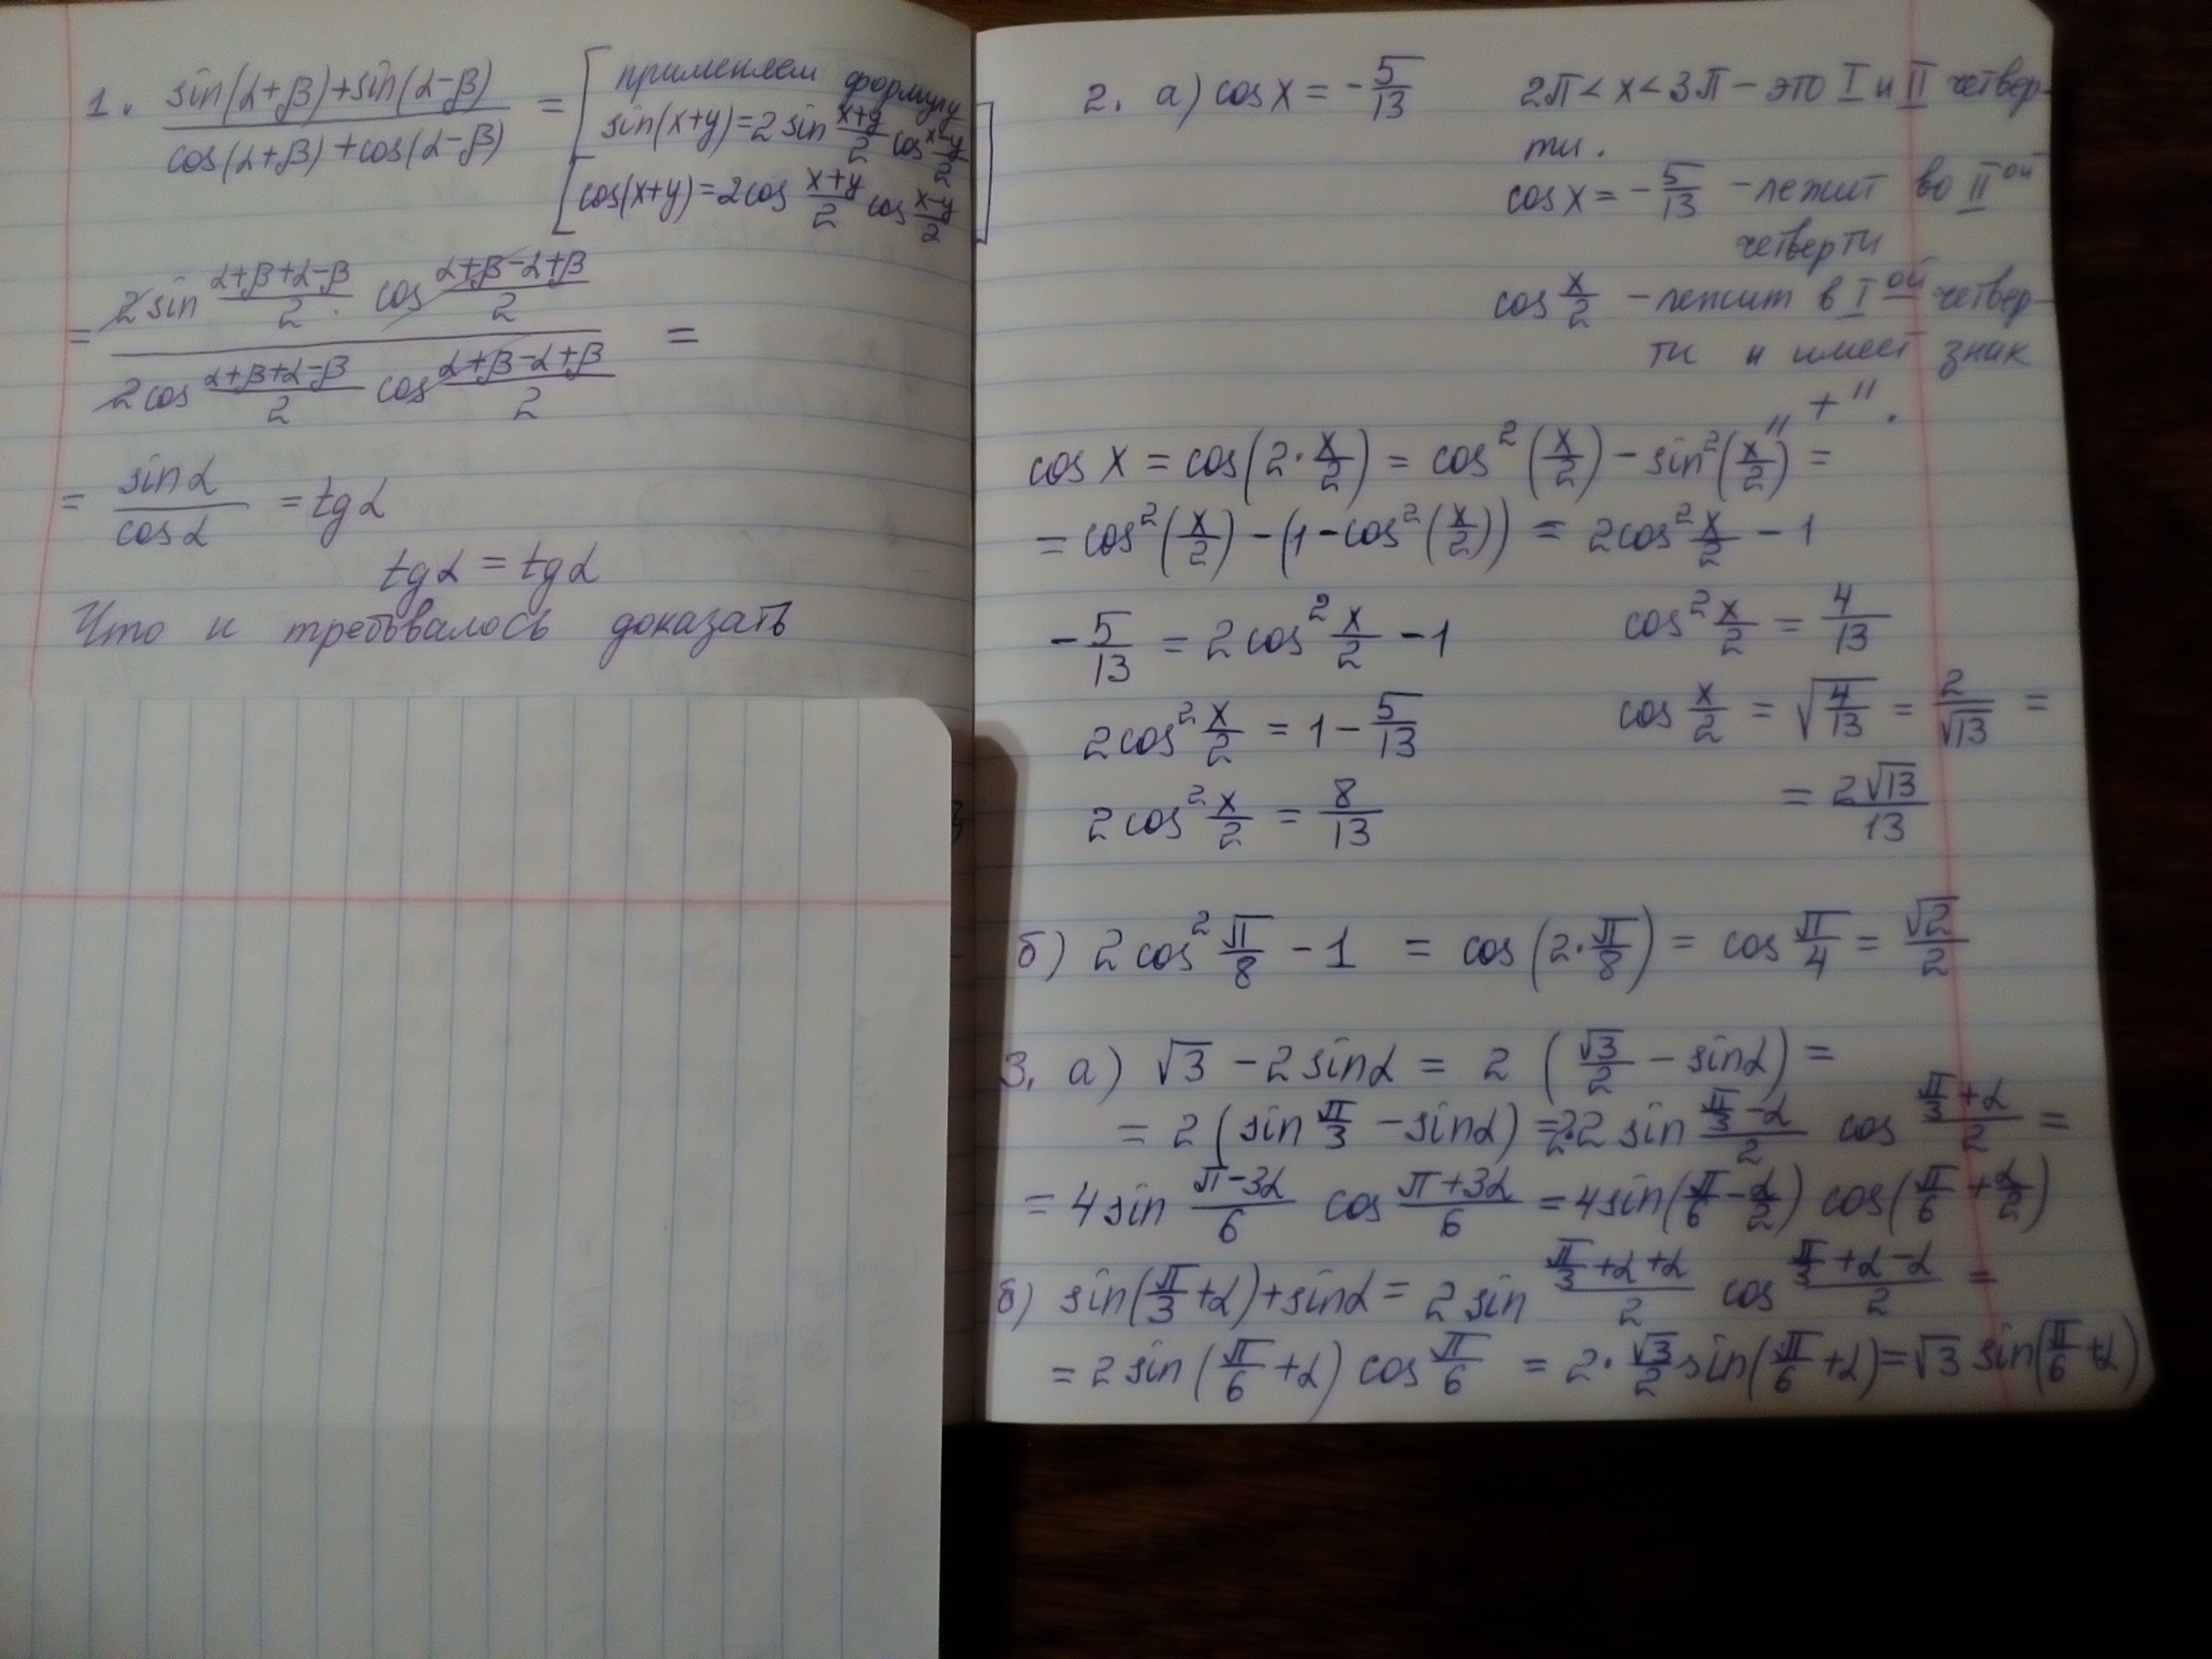 1. (sin(α+β)+sin(α-β))/(cos(α+β)+cos(α-β)) = [применяем формулу
sin(x+y)=2 sin (x+y)/2 cos (x-y)/2
cos(x+y)=2cos (x+y)/2 cos (x-y)/2]
= (2 sin (α+β+α-β)/2 · cos (α+β-α+β)/2)/(2 cos (α+β+α-β)/2 cos (α+β-α+β)/2) =
= sinα/cosα = tgα
tgα = tgα
Что и требовалось доказать
2. а) cos x = -5/13 2π < x < 3π - это I и II четвер-
ти.
cos x = -5/13 - лежит во II ой
четверти
cos x/2 - лежит в I ой четвер-
ти и имеет знак
„+".
cos x = cos(2·x/2) = cos²(x/2) - sin²(x/2) =
= cos²(x/2) - (1-cos²(x/2)) = 2cos² x/2 - 1
-5/13 = 2cos² x/2 - 1
2cos² x/2 = 1 - 5/13
2cos² x/2 = 8/13
cos² x/2 = 4/13
cos x/2 = √(4/13) = 2/√13 =
= 2√13/13
б) 2cos² π/8 - 1 = cos(2·π/8) = cos π/4 = √2/2
3. а) √3 - 2 sinα = 2 (√3/2 - sinα) =
= 2 (sin π/3 - sinα) = 2·2 sin (π/3-α)/2 cos (π/3+α)/2 =
= 4 sin (π-3α)/6 cos (π+3α)/6 = 4sin(π/6-α/2) cos(π/6+α/2)
б) sin(π/3+α)+sinα = 2 sin (π/3+α+α)/2 cos (π/3+α-α)/2 =
= 2 sin (π/6+α) cos π/6 = 2·√3/2 sin(π/6+α) = √3 sin(π/6+α)